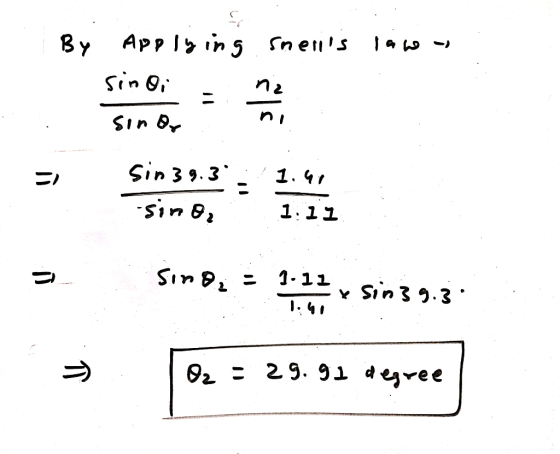 By Applying Snell's law →
sin θi / sin θr = n2 / n1
⇒ sin 39.3° / sin θ2 = 1.41 / 1.11
⇒ sin θ2 = 1.11 / 1.41 × sin 39.3°
⇒ θ2 = 29.91 degree